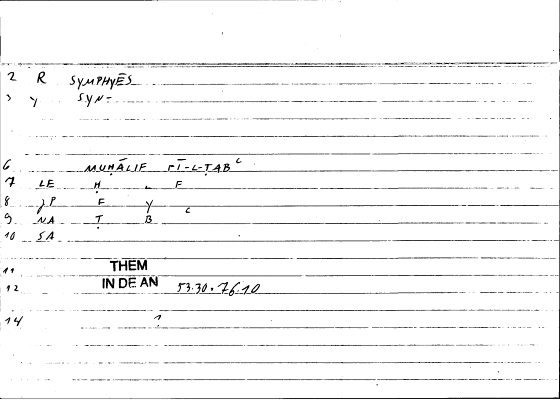 2 R SYMPHYĒS
3 Y SYN-
6 MUḪĀLIF FĪ-L-ṬABʿ
7 LE Ḫ L F
8 JP F Y
9 NA Ṭ B ʿ
10 SA
11 THEM
12 IN DE AN 53.30.76.10
14 ?